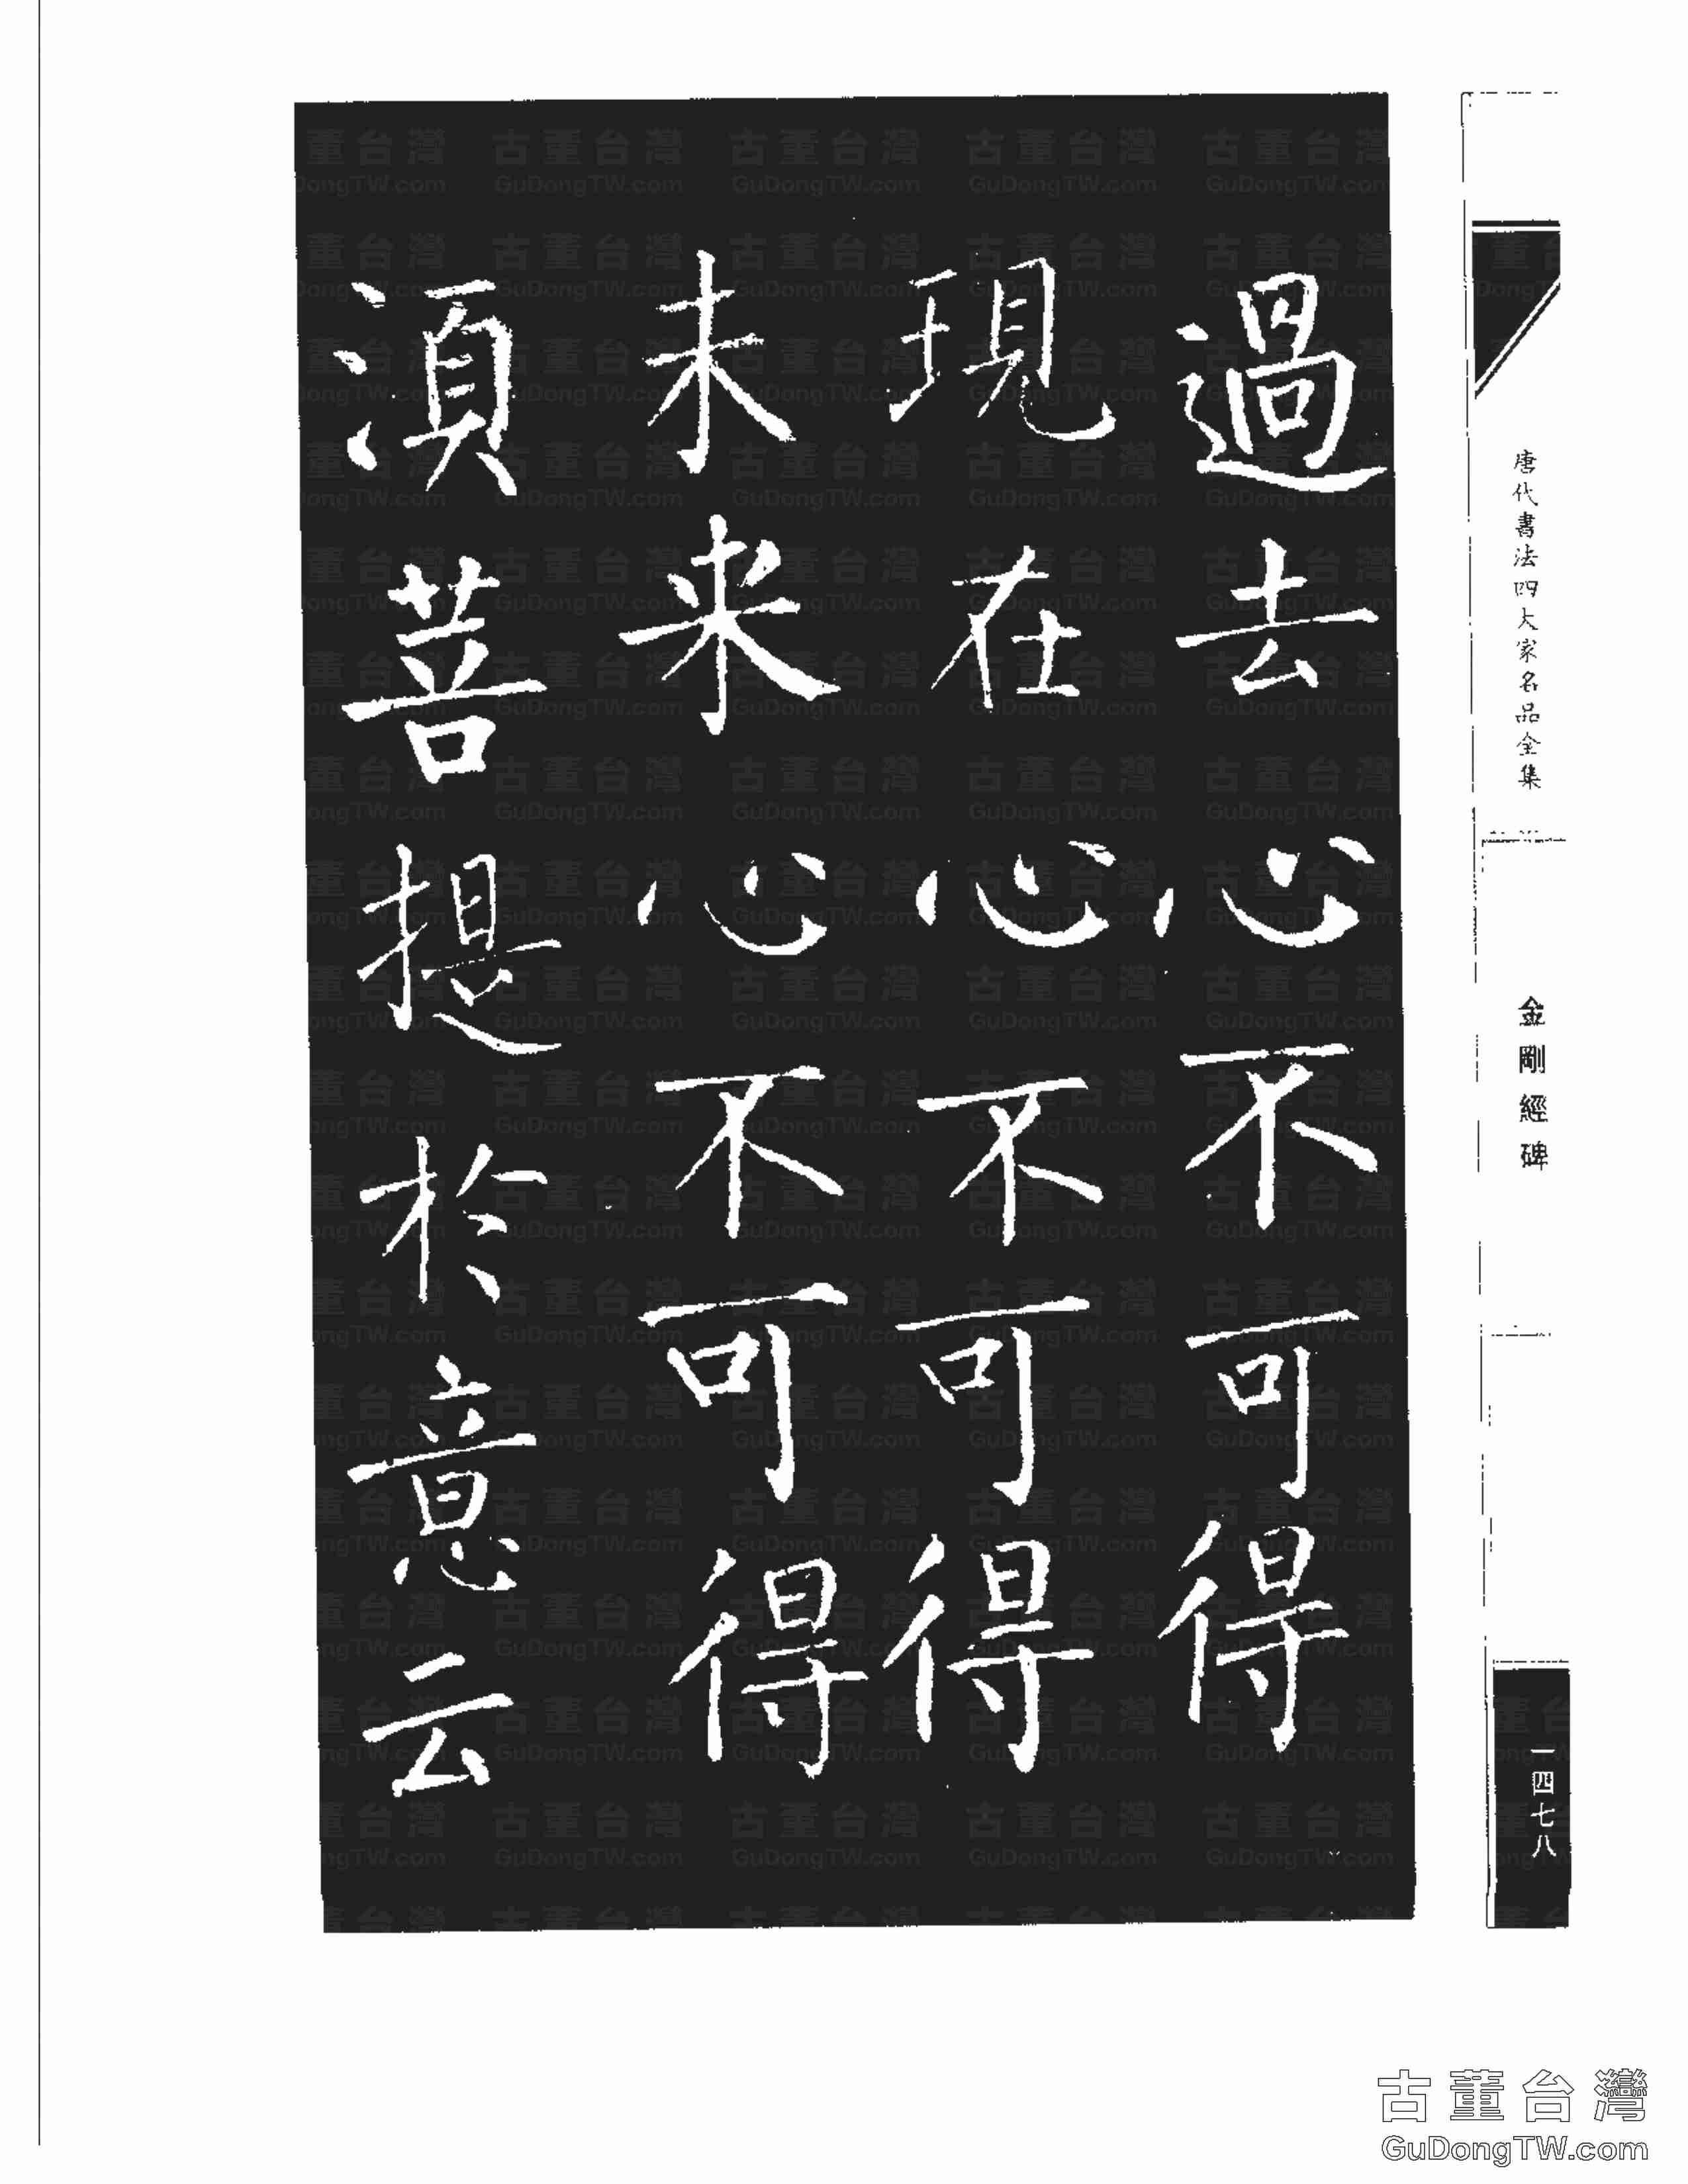 過去心不可得
現在心不可得
未来心不可得
湏菩提於意云
唐代書法四大家名品全集
金剛經碑
一四七八
古董台灣
GuDongTW.com